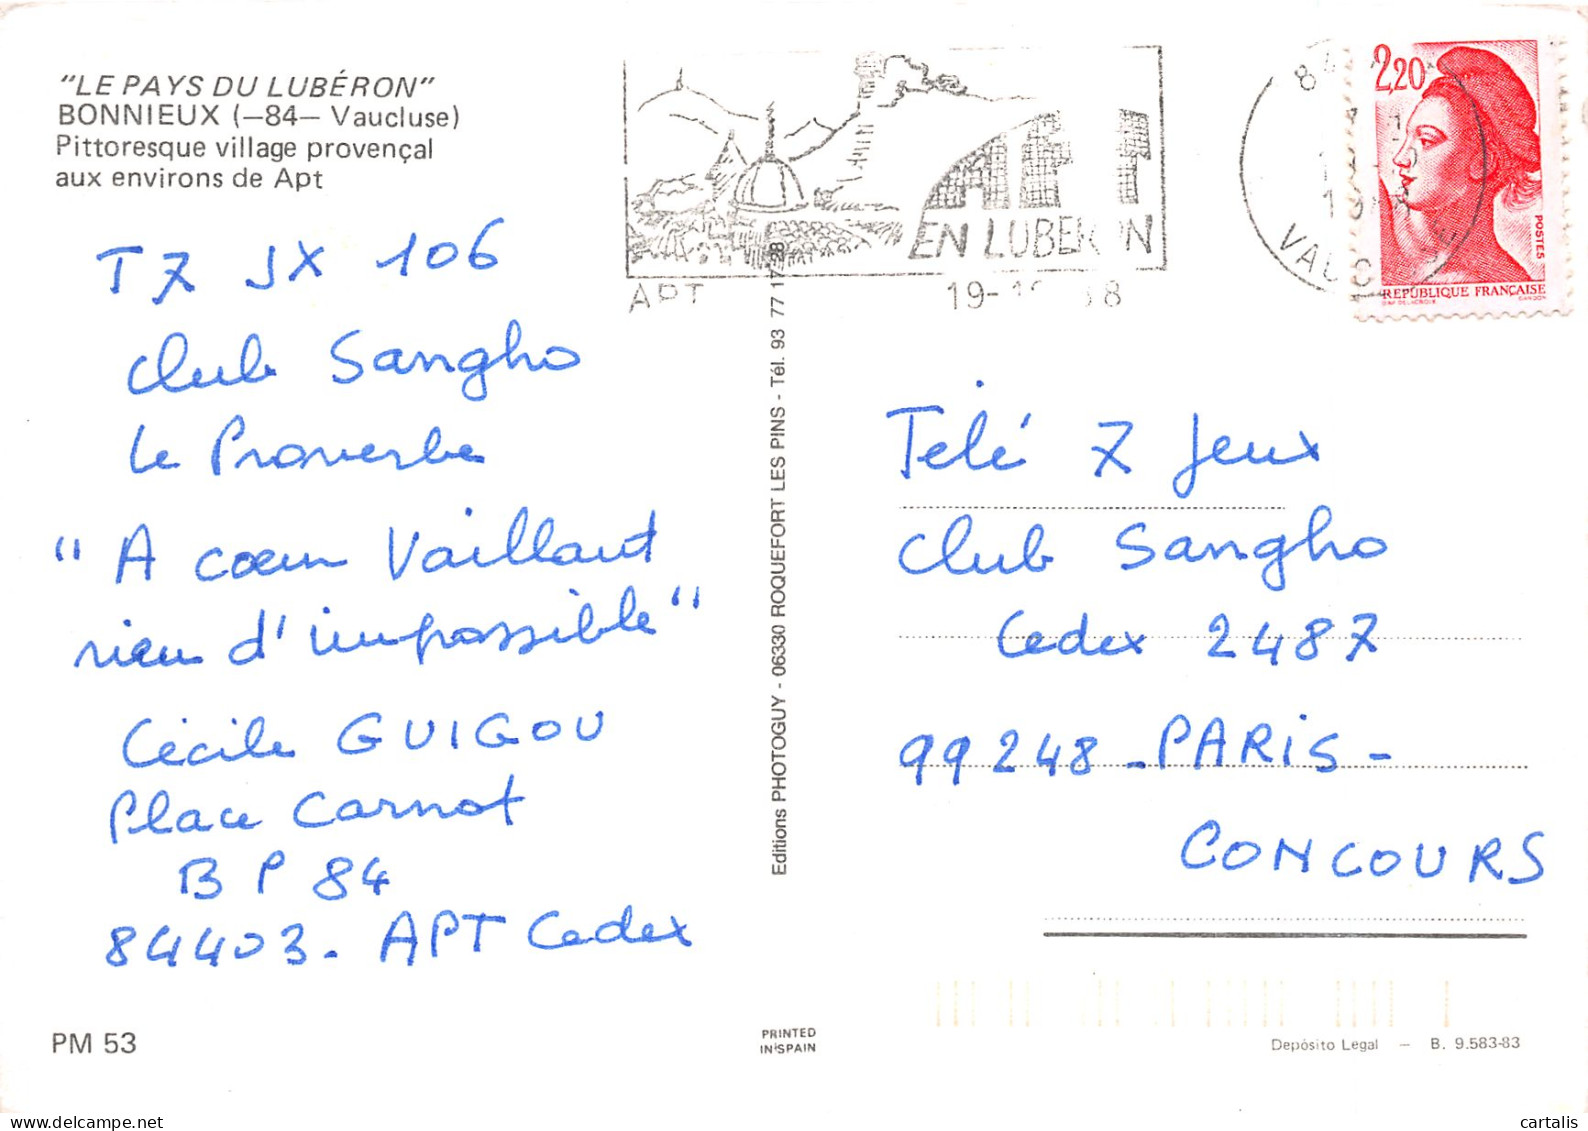 "LE PAYS DU LUBÉRON"
BONNIEUX (—84— Vaucluse)
Pittoresque village provençal
aux environs de Apt
T7 JX 106
Club Sangho
Le Proverbe
"A cœur Vaillant
rien d'impossible"
Cécile GUIGOU
Place Carnot
BP 84
84403 - APT Cedex
PM 53
APT
EN LUBERON
APT
19-
Editions PHOTOGUY - 06330 ROQUEFORT LES PINS - Tél. 93 77 17 28
PRINTED
IN SPAIN
VAUCLUSE
2,20
POSTES
REPUBLIQUE FRANÇAISE
Télé 7 Jeux
Club Sangho
Cedex 2487
99248 - PARIS -
CONCOURS
Depósito Legal — B. 9.583-83
cartalis
www.delcampe.net